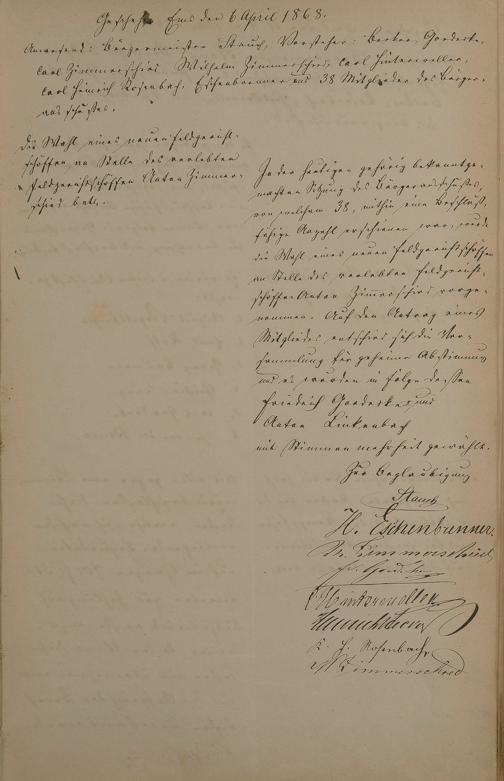 Geschehen Ems den 6 April 1868.
Anwesend: Bürgermeister Stauch, Vorsteher: Becker, Goedecke,
Carl Zimmerschied, Wilhelm Zimmerschied, Carl Hinterwäller,
Carl Heinrich Rosenbach, Eschenbrenner und 38 Mitglieder des Bürger-
ausschußes.
Die Wahl eines neuen Feldgericht-
schöffen an Stelle des verlebten
Feldgerichtschöffen Anton Zimmer-
schied betr.
In der heutigen gehörig bekanntge-
machten Sitzung des Bürgerausschußes,
von welchem 38, mithin eine beschluß-
fähige Anzahl erschienen war, wurde
die Wahl eines neuen Feldgerichtschöffen
an Stelle des verlebten Feldgericht-
schöffen Anton Zimmerschied vorge-
nommen. Auf den Antrag eines
Mitgliedes entschied sich die Ver-
sammlung für geheime Abstimmung
und es wurden in Folge dessen
Friedrich Goedecke und
Anton Linkenbach
mit Stimmenmehrheit gewählt.
Zur Beglaubigung
Stauch
H. Eschenbrenner
W. Zimmerschied
K. H. Rosenbach
Zimmerschied